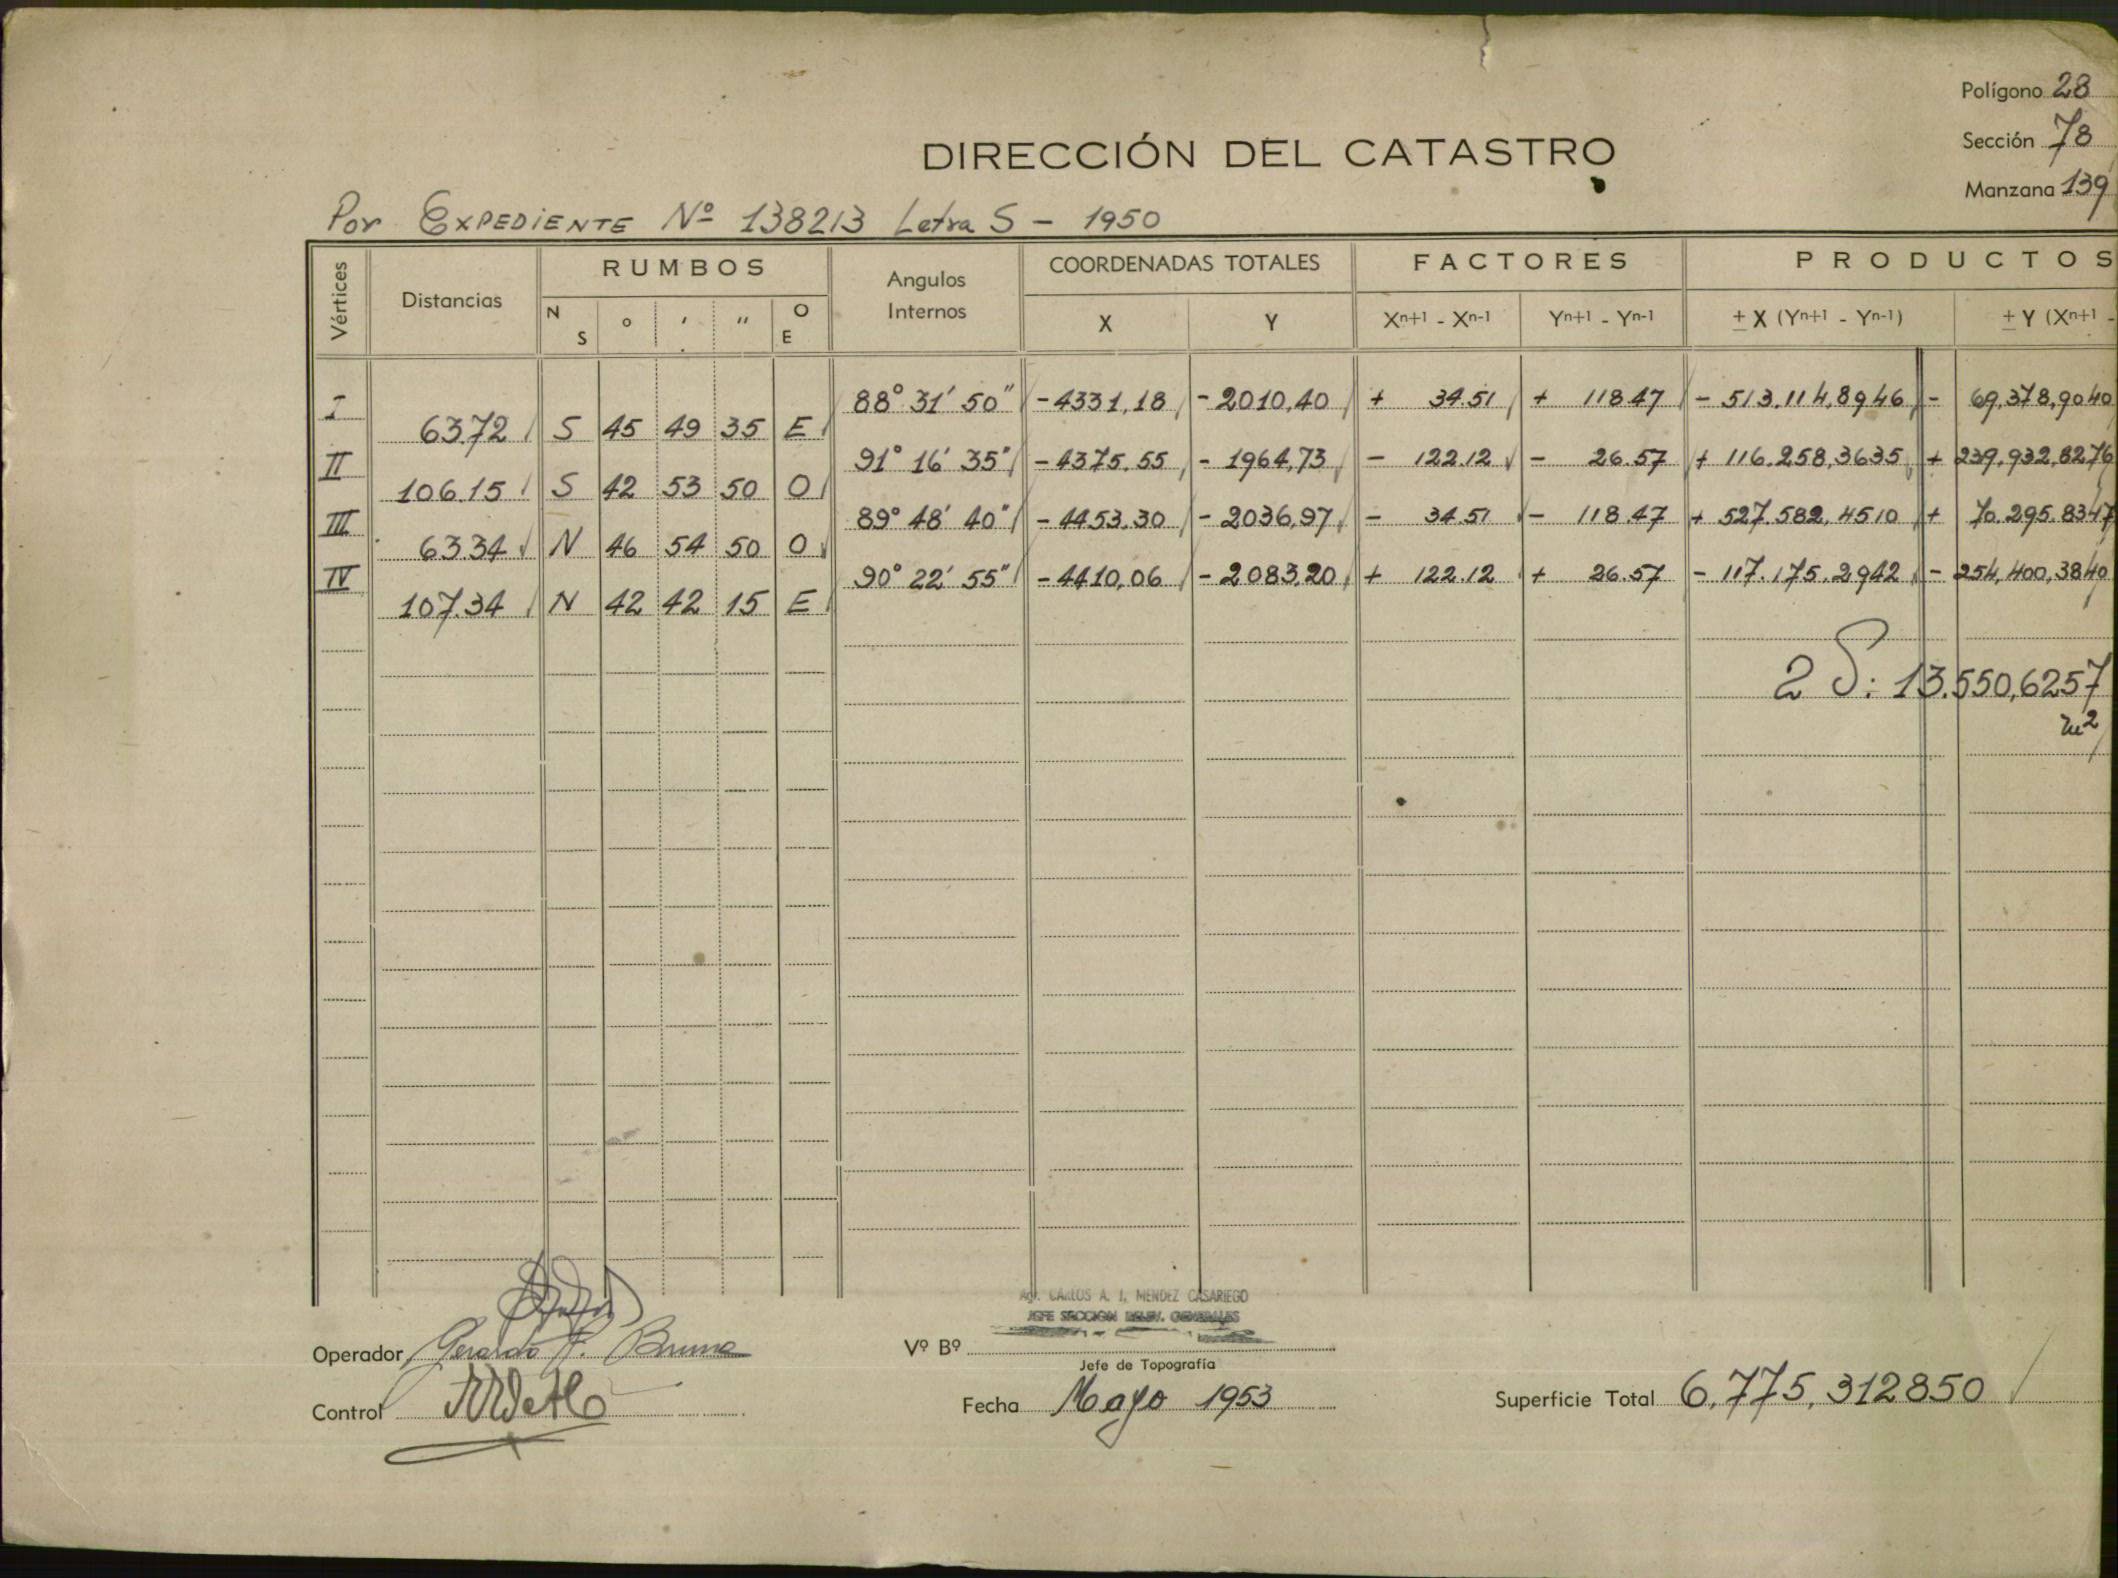 Polígono 28
DIRECCIÓN DEL CATASTRO
Sección 78
Manzana 139
Por EXPEDIENTE Nº 138213 Letra S - 1950
Vértices Distancias RUMBOS Angulos Internos COORDENADAS TOTALES FACTORES PRODUCTOS
N S ° ' " O E X Y Xn+1 - Xn-1 Yn+1 - Yn-1 ± X (Yn+1 - Yn-1) ± Y (Xn+1 -
I 88° 31' 50" -4331,18 -2010,40 + 34.51 + 118.47 - 513.114,8946 - 69,378,9040
63.72 S 45 49 35 E
II 91° 16' 35" -4375.55 - 1964,73 - 122.12 - 26.57 + 116.258,3635 + 239.932,8276
106.15 S 42 53 50 O
III 89° 48' 40" -4453.30 -2036,97 - 34.51 - 118.47 + 527.582,4510 + 70.295.8347
63.34 N 46 54 50 O
IV 90° 22' 55" -4410,06 -2083,20 + 122.12 + 26.57 - 117.175.2942 - 254,400,3840
107.34 N 42 42 15 E
2 S: 13.550,6257
m2
CARLOS A. I. MENDEZ CASARIEGO
JEFE SECCION RELEV. GENERALES
Operador Gerardo Bruna
Vº Bº
Jefe de Topografía
Control
Fecha Mayo 1953
Superficie Total 6.775,312850